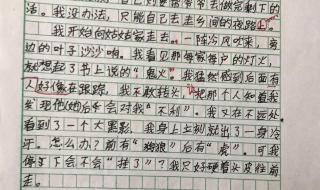 自己
法。我没办法，只能自己去走乡间的夜路上。
我开始向姑姑家走去。一阵冷风吹来，旁
边的叶子沙沙响。我看见那每家每户的灯火，
就想起了书上说的“鬼火”。我猛然感到后面有
人好像在跟踪，我不敢转头，把那个人知道我
发现他他后会对我“不利”。我又在不远处
看到了一个大黑影，我身上立刻就出了一身冷
汗。怎么办？前有“狗狼”后有“虎”。可我
停下会不会“挂了”？我只好硬着头皮往前
走。